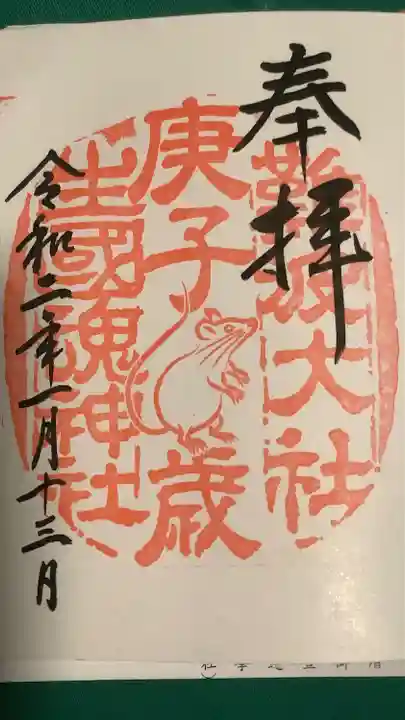 奉拝
難波大社
庚子歳
生國魂神社
令和二年一月十三日